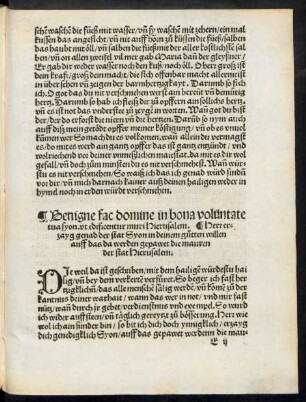 schē waschē die füeß mit wasser/ vñ sy waschē mit zehern/ ein mal
kussen das angesicht/ vñ nit auff hörn zů küssen die füeß/ salben
das haubt mit öll/ vñ salben die füeß mit der aller kostlichstē salben
/ vñ on allen zweifel vil mer gab Maria dañ der gleysner/
Er gab dir weder wasser noch den kuß/ noch öll. O herr groß ist
dein krafft/ groß dein macht/ die sich offenbar macht aller meist
in über sehen vñ zeigen der barmhertzigkayt. Darumb so sich
ich. O got das du nit verschmehen würst ain berewt vñ demütig
hertz. Darumb so hab ich fleiß dir zů opffern ain sollichs hertz.
vñ es ist not das vnbresten zů zeygt in worten. Wañ got dir bist
der/ der do erforst die nieren vñ der hertzen. Darüb so nym auch
auff diß mein getödte opffer meiner köstigung/ vñ ob es vnuol
kumen wer So mach du es volkomen/ wañ du allein der vermagst
es/ do mit es werd ain gantz opffer das ist gantz entzünd/ vnd
wolriechend vor deiner vnmeßlichen maiestat. da mit es dir wol
gefall/ vñ doch zům minsten du es nit verschmehest. Wañ wurstu
es nit verschmehen/ So waiß ich das ich genad würd finden
vor dir/ vñ mich darnach kainer auß deinen hailigen weder in
hymel noch in erden würdt verschmehen.
¶ Benigne fac domine in bona volūntate
tua syon. vt edificentur muri Hierusalem. ¶ Herr er
zayg genad der stat Syon in deinem gůtten willen
auff das da werden gepawet die mauren
der stat Hierusalem.
DJe weil da ist geschriben/ mit dem hailigē würdestu hai
lig/ vñ bey dem verkertē verfüret. So beger ich fast her
tzigklichñ/ das alle menschē sälig werdē/ vñ komē zů der er
kantnus deiner warhait/ wann das wer in not/ vnd mir fast
nütz/ wañ durch ir gebet/ verdienstnus vnd exempel. So wurd
ich wider aufsteen/ vñ täglich gereytzt zů bösserung. Herr wie
wol ich ain sünder bin/ so bit ich dich doch ynnigklich/ erzayg
dich genedigklich Syon/ auff das gepawet werdenn die mau
E ij